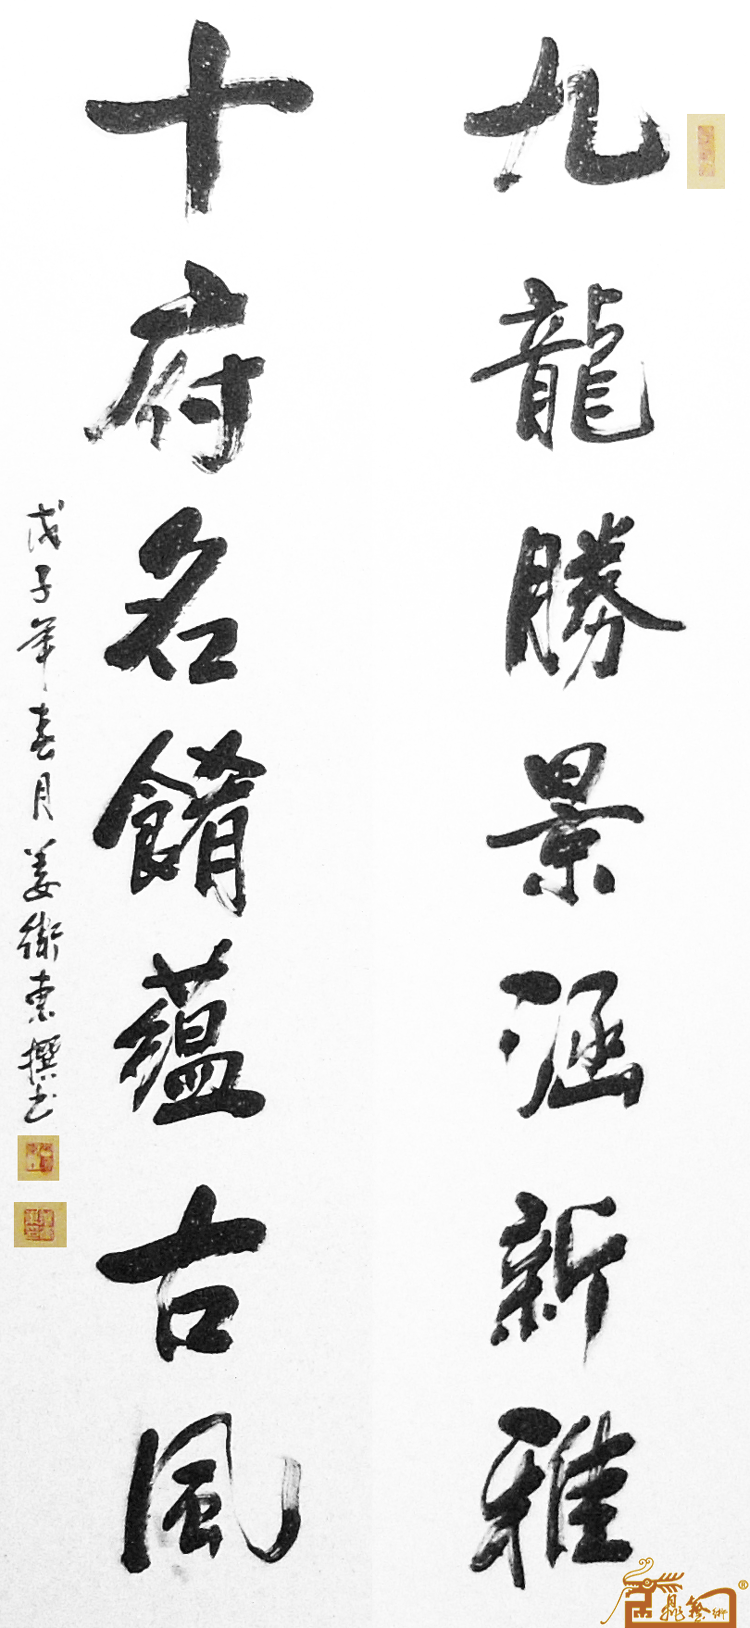 九龍勝景涵新雅
十府名餚蘊古風
戊子年春月姜衛東撰书